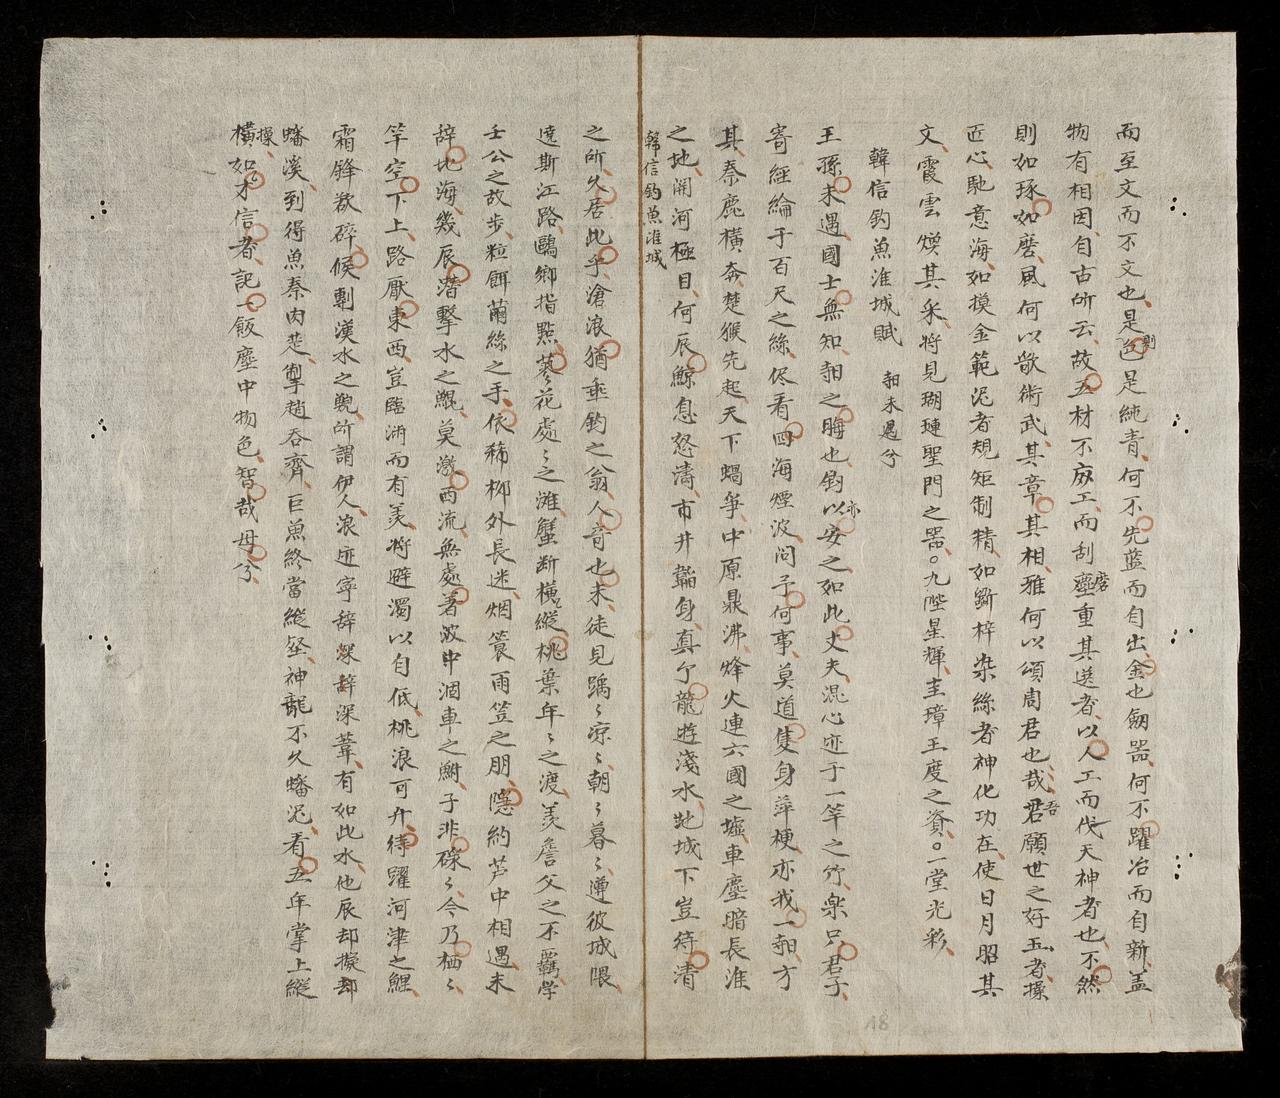 而至文而不文也是則色是純青何不先藍而自出金也劒器何不躍冶而自新盖
物有相因自古所云故五材不廢工而刮磨重其送者以人工而代天神者也不然
則如琢如磨風何以歌術武其章其相雅何以頌周君也哉吾君願世之好玉者操
匠心馳意海如摸金範泥者規矩制精如斵梓染絲者神化功在使日月昭其
文霞雲煥其采將見瑚璉聖門之器九陛星輝圭璋王度之資一堂光彩
韓信釣魚淮城賦
韜未遇兮
王孫未遇國士無知韜之晦也釣以安之如此丈夫混心迹于一竿之竹楽只君子
亦寄經綸于百尺之絲侭看四海煙波问予何事莫道隻身萍梗亦我一韜方
其秦鹿橫奔楚猴先起天下蝸爭中原鼎沸烽火連六國之墟車塵暗長淮
之地関河極目何辰鯨息怒濤市井韜身真个龍遊淺水玭城下豈待清
韓信釣魚淮城
之所久居此乎滄浪猶垂釣之翁人奇也未徒見踽〻凉〻朝〻暮〻遵彼城隈
遶斯江路鷗鄉指點蓼花處〻之滩蟹断橫縱桃葉年〻之渡羙詹父之不羈学
壬公之故步粒餌繭絲之手依稀栁外長迷烟簑雨笠之朋隱約芦中相遇未
辞地海幾辰潜擊水之鯤莫激西流無處著波中涸車之鮒子非碌〻今乃栖〻
竿空下上路厭東西豈臨渊而有羙將避濁以自低桃浪可升待躍河津之鯉
霜鋒欲碎候剸漢水之鯢所謂伊人浪迹寧辞深辞深葦有如此水他辰却擬却
蟠溪到得魚秦肉楚掣趙吞齊巨魚終當縱壑神龍不久蟠泥看五年掌上縱
橫操如木信者記一飯塵中物色智哉母兮